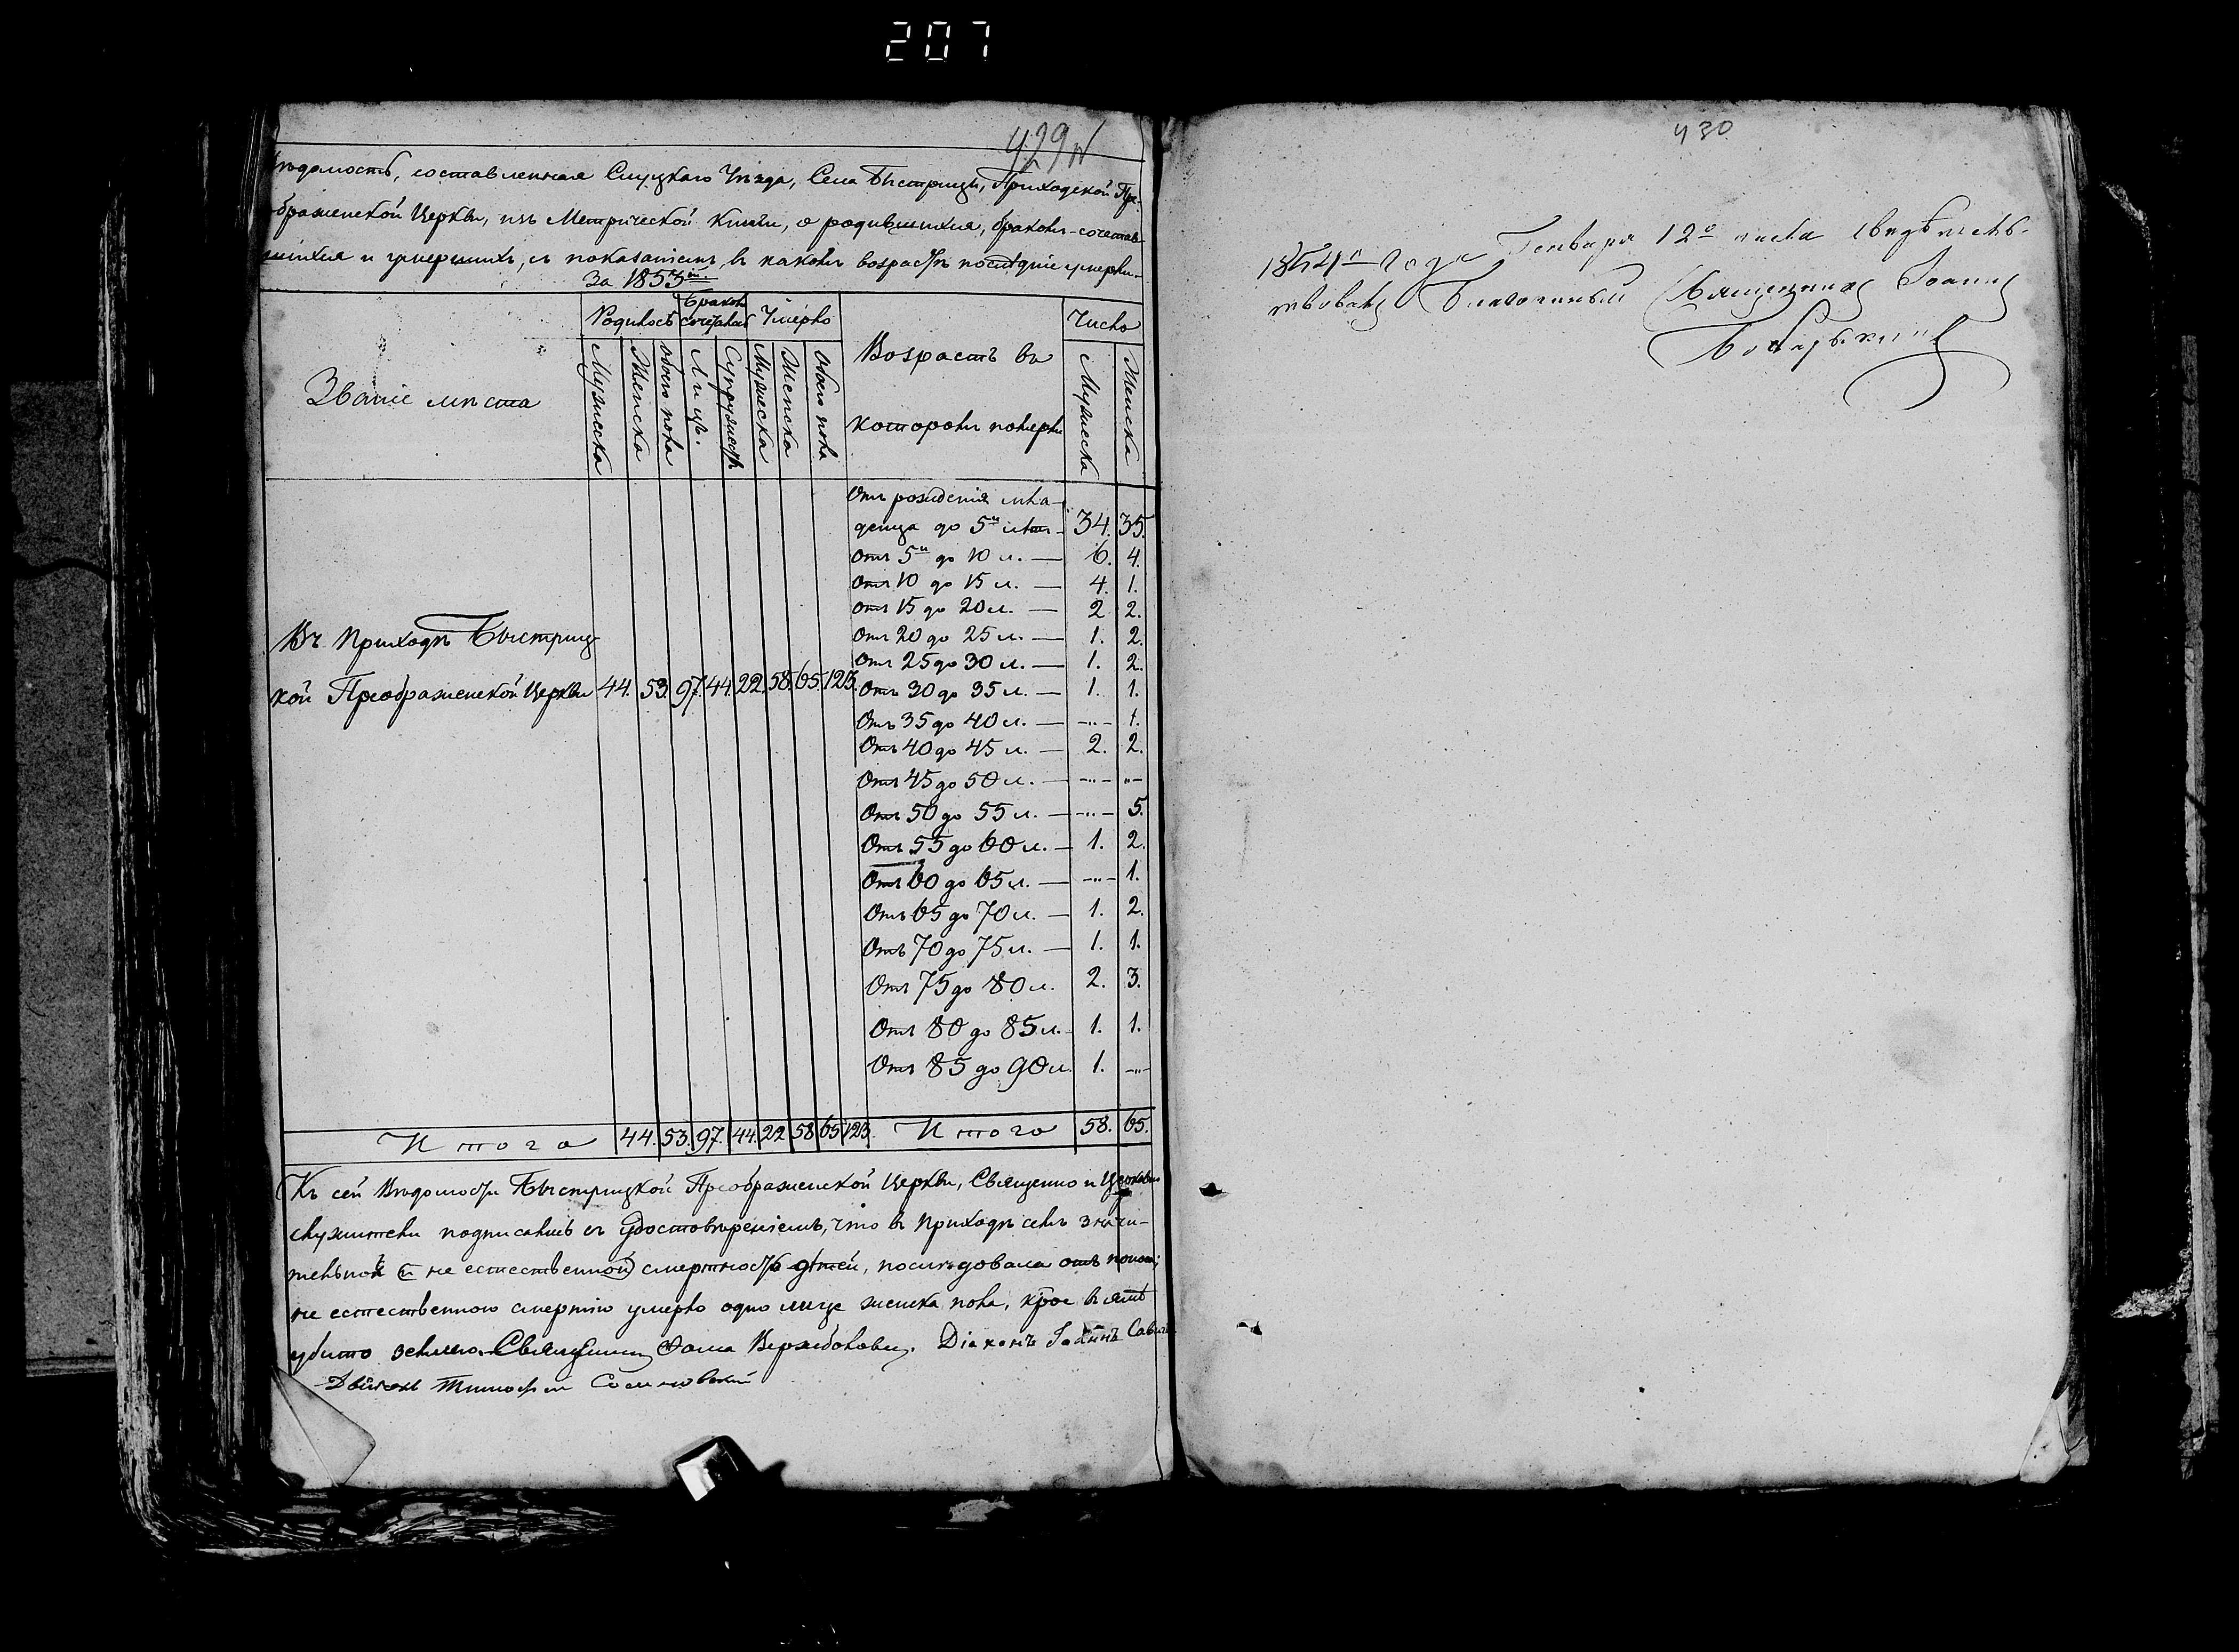 207
429
Вѣдомость, составленная Слуцкаго Уѣзда, Села Быстрицы, Приходской Пре-
ображенской Церкви, изъ Метрической Книги, о родившихся, бракомъ-сочетав-
шихся и умершихъ, съ показаніемъ, въ какомъ возрастѣ послѣдніе умерли
За 1853й.
Званіе мѣста
Родилось
Бракомъ сочеталось
Умерло
Возрастъ въ
которомъ померли
Число
Мужеска
Женска
Обоего пола
Лицъ.
Супружествъ
Мужеска
Женска
Обоего пола
Мужеска
Женска
Отъ рожденія мла-
денца до 5и лѣтъ 34. 35.
Отъ 5и до 10 л. — 6. 4.
Отъ 10 до 15 л. — 4. 1.
Отъ 15 до 20 л. — 2 2.
Отъ 20 до 25 л. — 1. 2.
Отъ 25 до 30 л. — 1. 2.
Въ Приходѣ Быстриц-
кой Преображенской Церкви 44. 53. 97. 44. 22. 58. 65. 123.
Отъ 30 до 35 л. — 1. 1.
Отъ 35 до 40 л. — -„- 1.
Отъ 40 до 45 л. — 2. 2.
Отъ 45 до 50 л. — -„- „-
Отъ 50 до 55 л. — -„- 5.
Отъ 55 до 60 л. — 1. 2.
Отъ 60 до 65 л. — -„- 1.
Отъ 65 до 70 л. — 1. 2.
Отъ 70 до 75 л. — 1. 1.
Отъ 75 до 80 л. 2. 3.
Отъ 80 до 85 л. 1. 1.
Отъ 85 до 90 л. 1. -„-
Итого 44. 53. 97. 44. 22 58 65 123. Итого 58. 65.
Къ сей Вѣдомости Быстрицкой Преображенской Церкви, Священно и Церковно
служители подписались съ удостовѣреніемъ, что въ Приходѣ семъ значи-
тельной (и не естественной) смертность дѣтей, послѣдовала отъ
не естественною смертію умерло одно лице женска пола, кое въ ямѣ
убито землею. Священникъ Фома Вержболовичъ. Діаконъ Іоаннъ
Дьячекъ Тимофей
430
1854го года Генваря 12о числа свидѣтельст-
вовалъ Благочинный Священникъ Іоаннъ